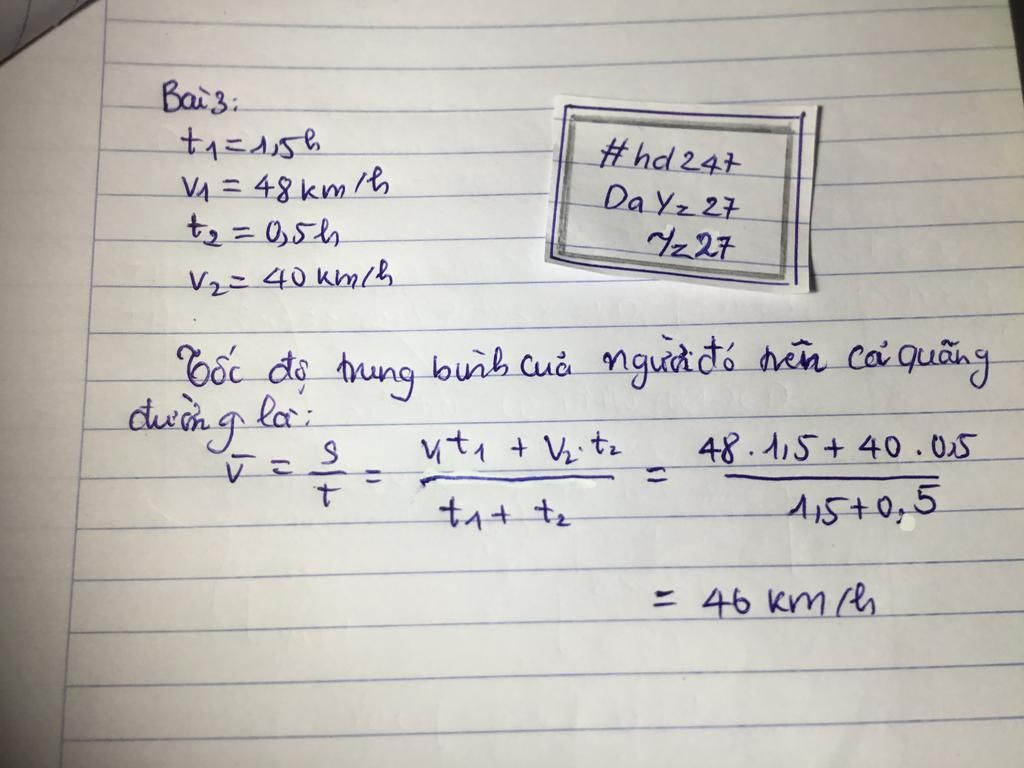 Bài 3:
t1 = 1,5h
v1 = 48 km/h
t2 = 0,5h
v2 = 40 km/h
#hd247
DaYz27
Yz27
Tốc độ trung bình của người đó trên cả quãng
đường là:
v̄ = s/t = (v1t1 + v2.t2)/(t1 + t2) = (48.1,5 + 40.0,5)/(1,5+0,5)
= 46 km/h